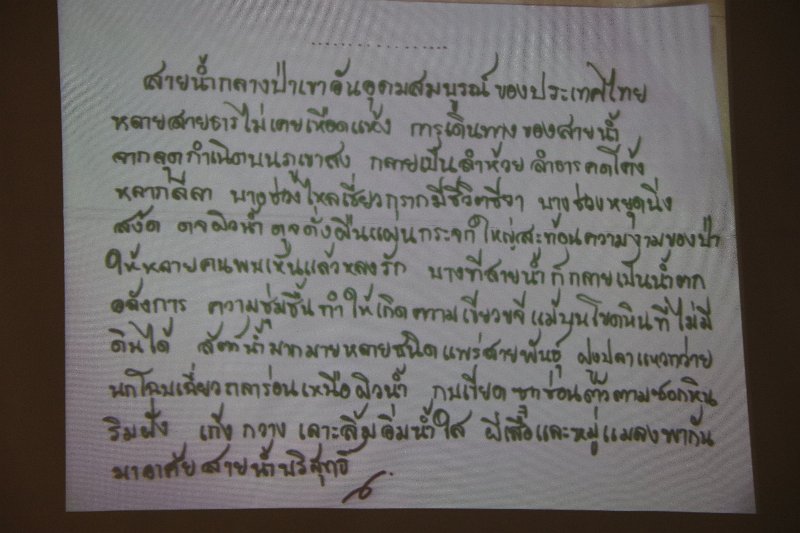 สายน้ำกลางป่าเขาอันอุดมสมบูรณ์ของประเทศไทย
หลายสายธารไม่เคยเหือดแห้ง การเดินทางของสายน้ำ
จากจุดกำเนิดบนภูเขาสูง กลายเป็นลำห้วย ลำธารคดโค้ง
หลากลีลา บางช่วงไหลเชี่ยวกรากมีชีวิตชีวา บางช่วงหยุดนิ่ง
สงัด ดุจผิวน้ำ ดูจดั่งผืนแผ่นกระจกใหญ่สะท้อนความงามของป่า
ให้หลายคนพบเห็นแล้วหลงรัก บางทีสายน้ำก็กลายเป็นน้ำตก
อลังการ ความชุ่มชื้นทำให้เกิดความเขียวขจีแม้บนโขดหินที่ไม่มี
ดินได้ สัตว์น้ำมากมายหลายชนิดแพร่สายพันธุ์ ฝูงปลาแหวกว่าย
นกโฉบเฉี่ยวถลาร่อนเหนือผิวน้ำ กบเขียดซุกซ่อนตัวตามซอกหิน
ริมฝั่ง เก้ง กวาง เลาะลิ้มอิ่มน้ำใส ผีเสื้อและหมู่แมลงพากัน
มาอาศัยสายน้ำบริสุทธิ์